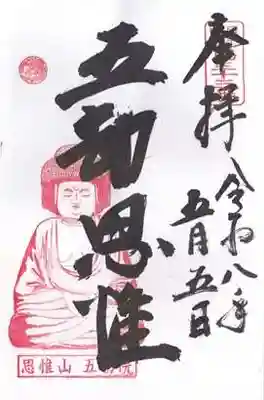 奉拝
令和八年
五月五日
五劫思惟
思惟山 五劫院